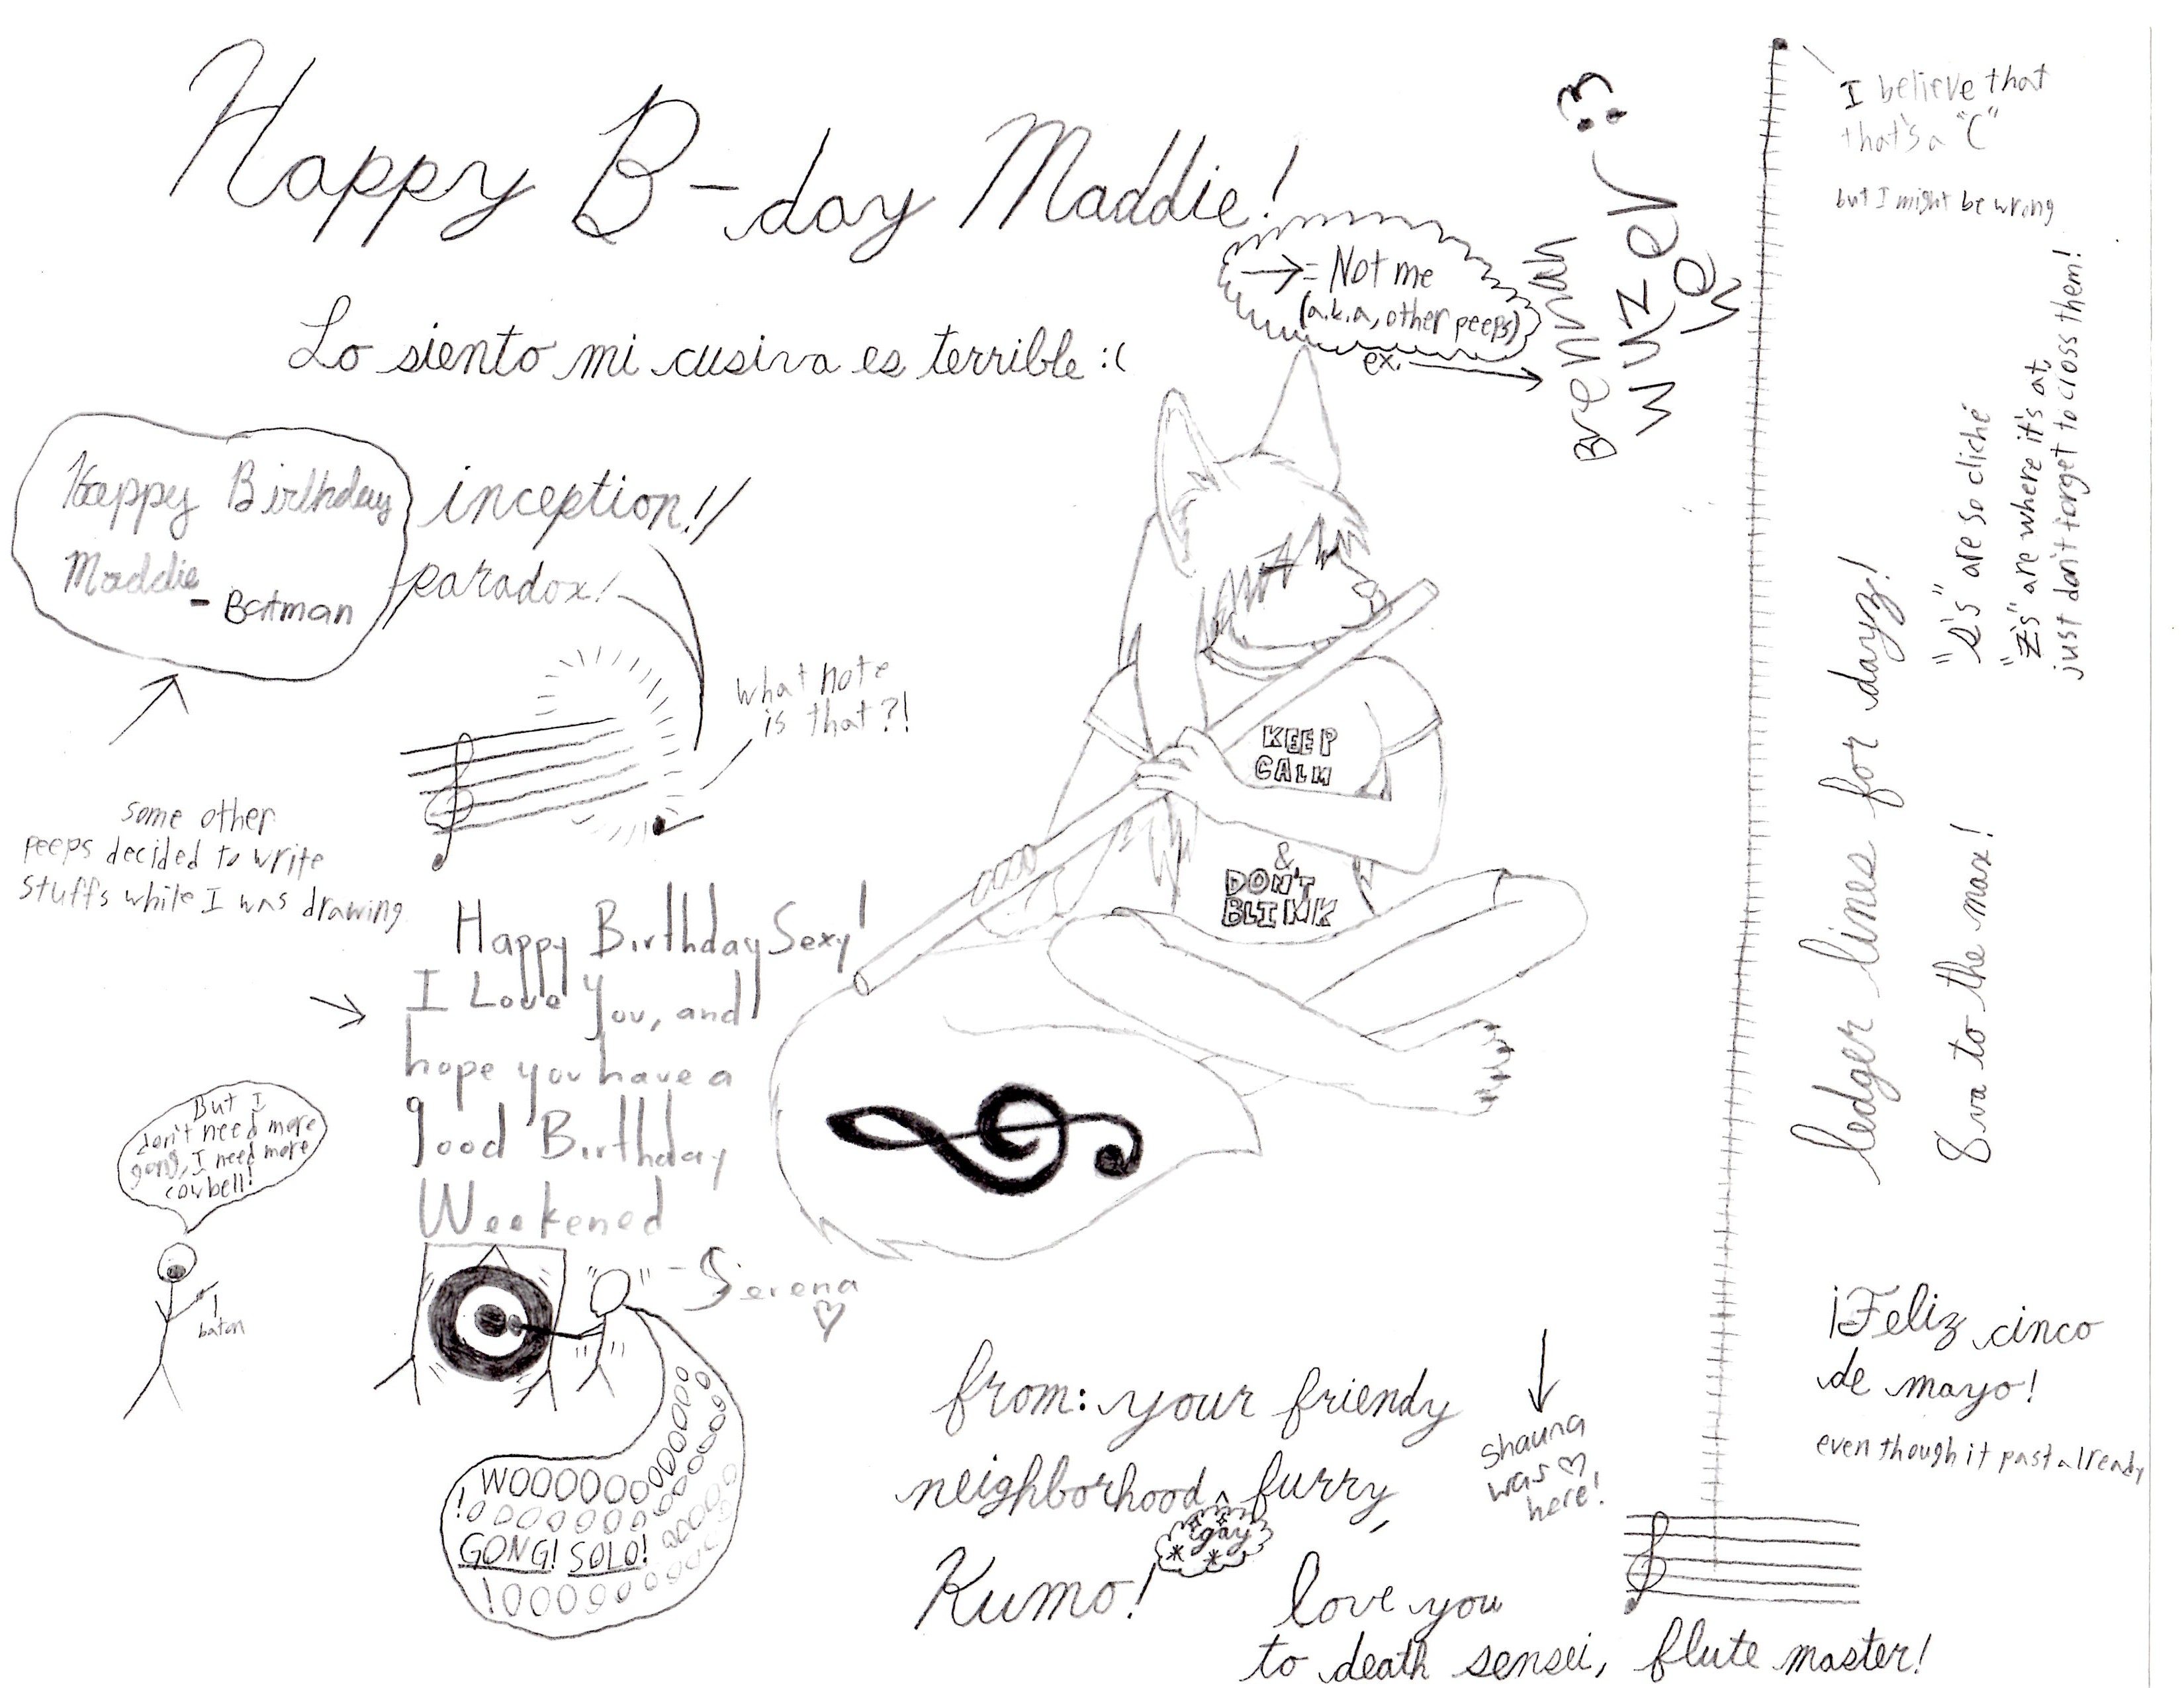 Happy B-day Maddie!
Lo siento mi cusiva es terrible :(
→ = Not me
(a.k.a, other peeps)
ex. →
Brennan
wuz er
:3
Happy Birthday
Maddie
- Batman
inception!!
paradox!
what note
is that?!
some other
peeps decided to write
stuffs while I was drawing
Happy Birthday Sexy!
I Love You, and
hope you have a
good Birthday
Weekened
- Serena
♡
KEEP
CALM
&
DON'T
BLINK
But I
don't need more
gong, I need more
cowbell!
baton
WOOOOOOOOOOO
GONG! SOLO!
from: your friendy
neighborhood ^ furry,
gay
* *
Kumo!
love you
to death sensei, flute master!
Shauna
was ♡
here!
I believe that
that's a "C"
but I might be wrong
ledger lines for dayz!
8va to the max!
"s's" are so cliché
"z's" are where it's at,
just don't forget to cross them!
¡Feliz cinco
de mayo!
even though it past already